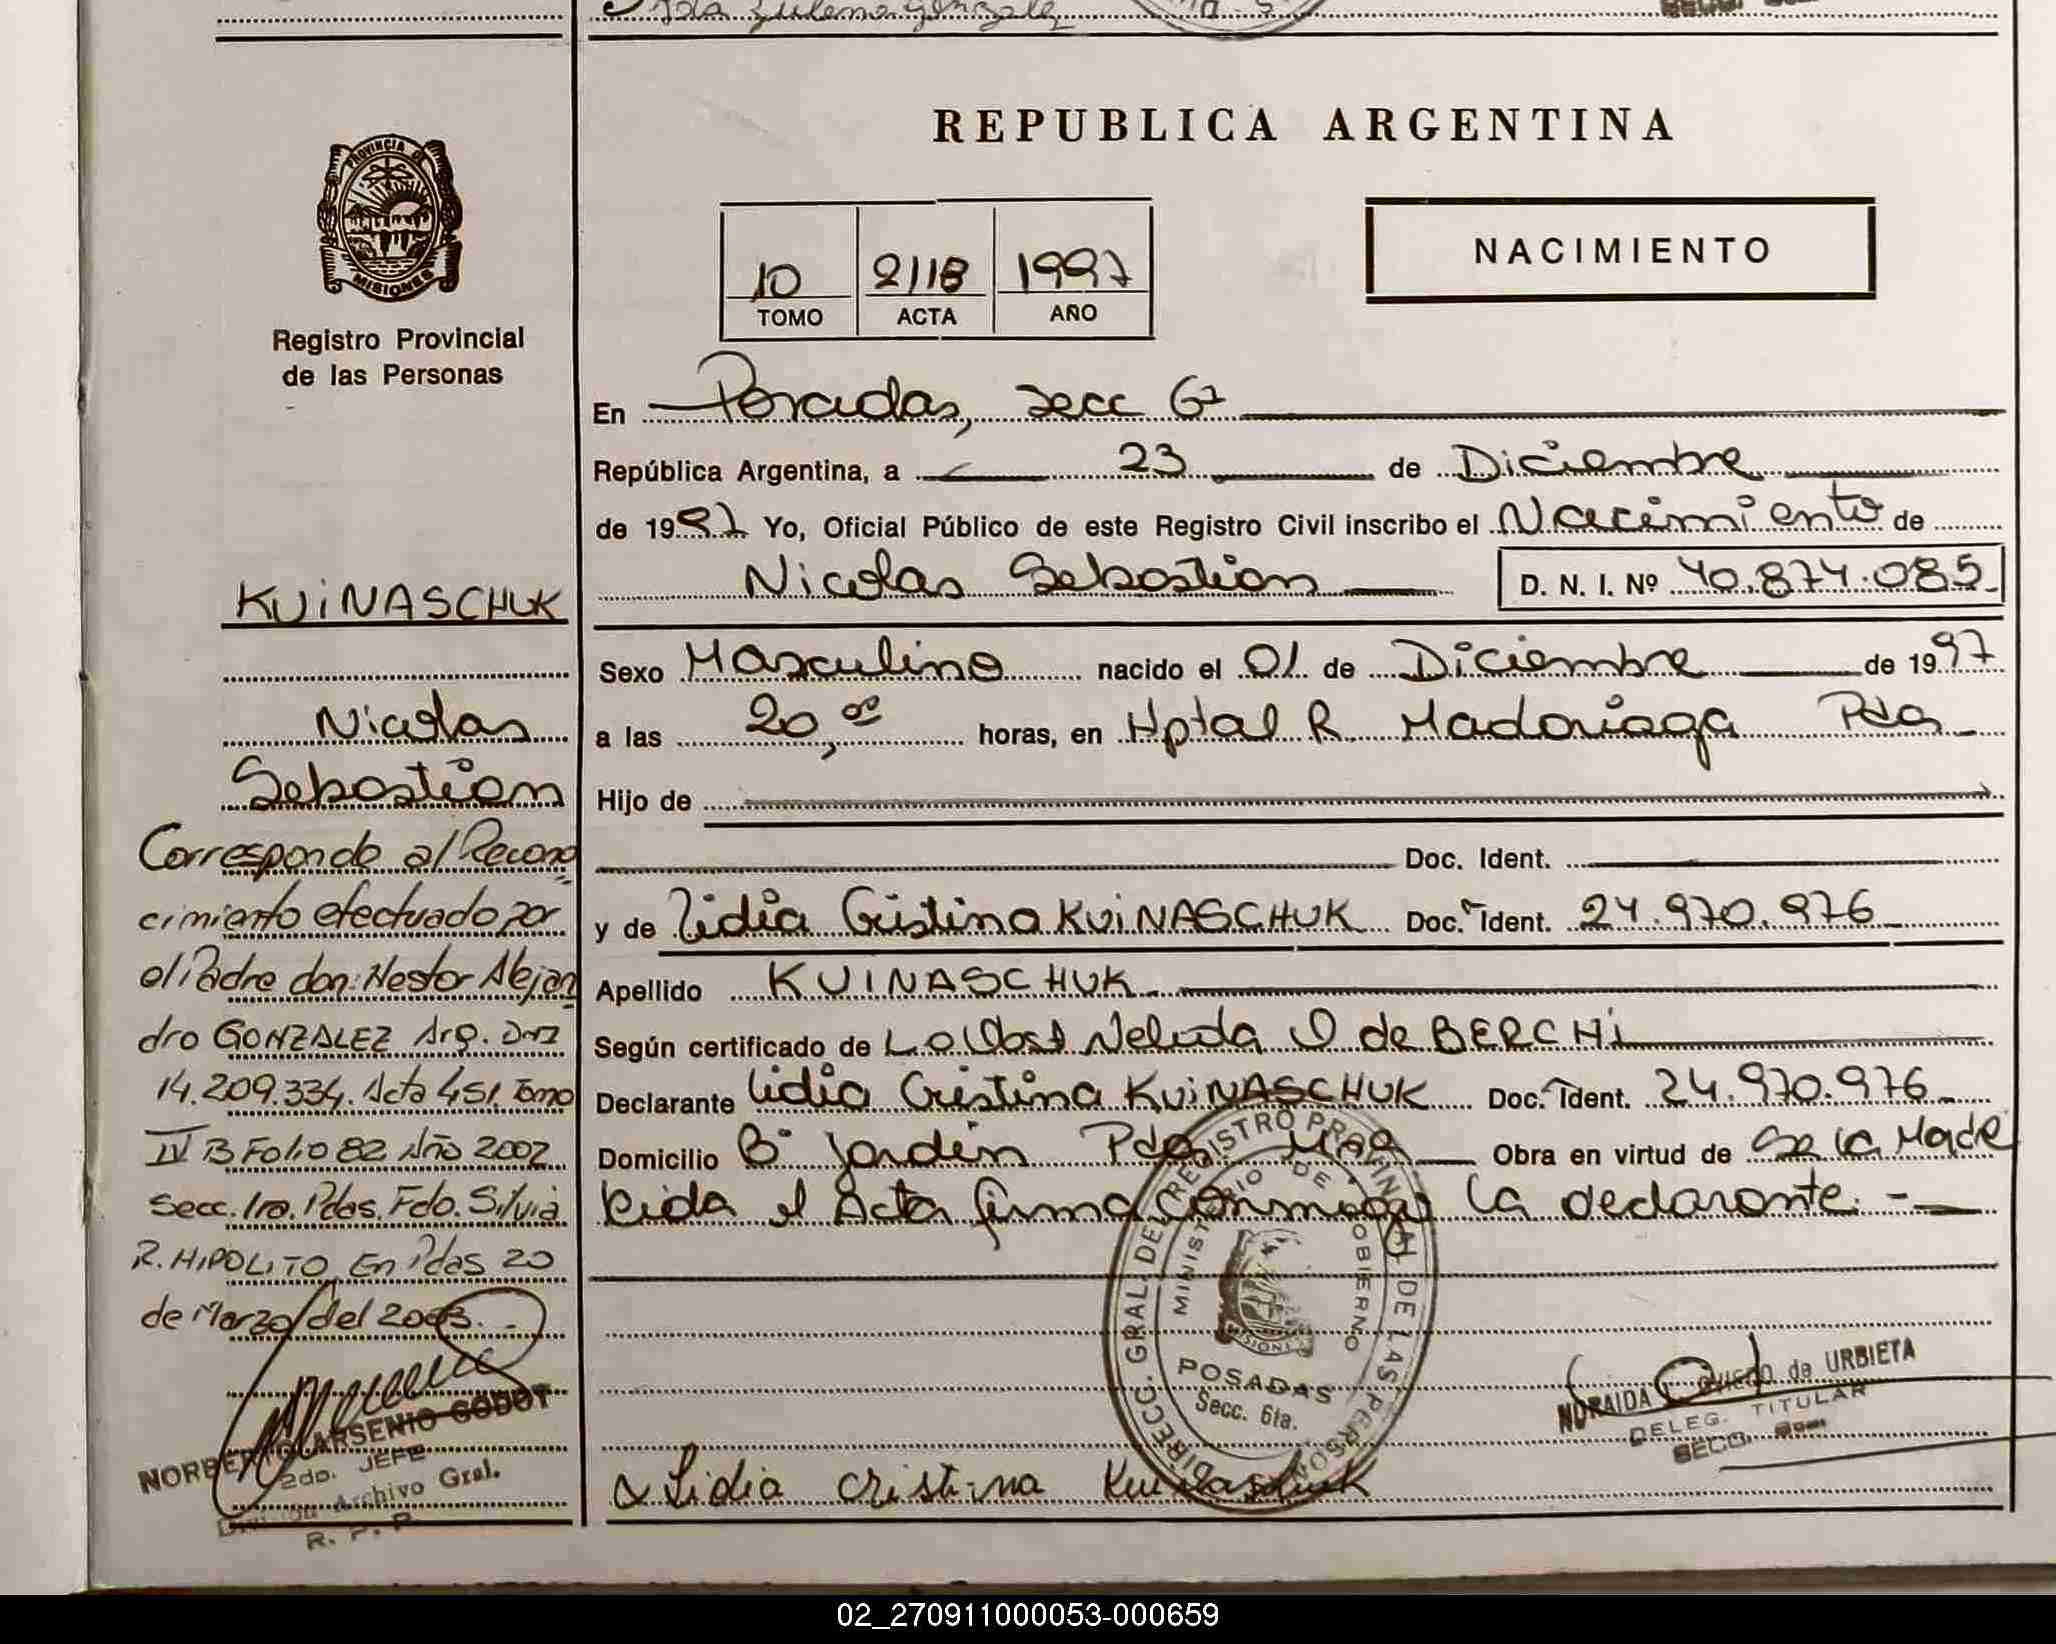 Ida Zulema Gonzalez
PROVINCIA DE
MISIONES
Registro Provincial
de las Personas
KUiNASCHUK
Nicolas
Sebastian
Corresponde al Recono
cimiento efectuado por
el Padre don: Nestor Alejan
dro GONZALEZ Arg. DNI
14.209.334. Acta 451. Tomo
IV B Folio 82 Año 2002
Secc. 1ra. Pdas. Fdo. Silvia
R. HIPOLITO. En Pdas 20
de Marzo del 2003.-
NORBERTO ARSENIO GODOT
2do. JEFE
División Archivo Gral.
R. P. P.
REPUBLICA ARGENTINA
10 2118 1997
TOMO ACTA AÑO
NACIMIENTO
En Posadas, Secc 6ª
República Argentina, a 23 de Diciembre
de 1997 Yo, Oficial Público de este Registro Civil inscribo el Nacimiento de
Nicolas Sebastian D. N. I. Nº 40.874.085
Sexo Masculino nacido el 01 de Diciembre de 1997
a las 20,00 horas, en Hptal R. Madariaga Pdas
Hijo de
Doc. Ident.
y de Lidia Cristina KUiNASCHUK Doc. Ident. 24.970.976
Apellido KUINASCHUK
Según certificado de La Obst Nelida O de BERCHi
Declarante Lidia Cristina KUiNASCHUK Doc. Ident. 24.970.976
Domicilio Bº Jardin Pdas Mnes Obra en virtud de Se la Madre
Leida el Acta firma conmigo la declarante.-
DIRECC. GRAL. DEL REGISTRO PROVINCIAL DE LAS PERSONAS
MINISTERIO DE GOBIERNO
MISIONES
POSADAS
Secc. 6ta.
NORAIDA OVIEDO de URBIETA
DELEG. TITULAR
SECC. 6ta
Lidia Cristina Kuinaschuk
02_270911000053-000659